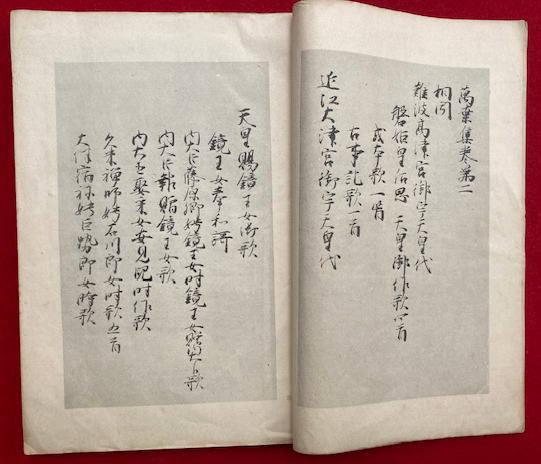 萬葉集巻第二
相聞
難波高津宮御宇天皇代
磐姫皇后思天皇御作歌四首
或本歌一首
古事記歌一首
近江大津宮御宇天皇代
天皇賜鏡王女御歌
鏡王女奉和歌
内大臣藤原卿娉鏡王女時鏡王女贈内大臣歌
内大臣報贈鏡王女歌
内大臣娶采女安見児時作歌
久米禅師娉石川郎女時歌五首
大伴宿祢娉巨勢郎女時歌